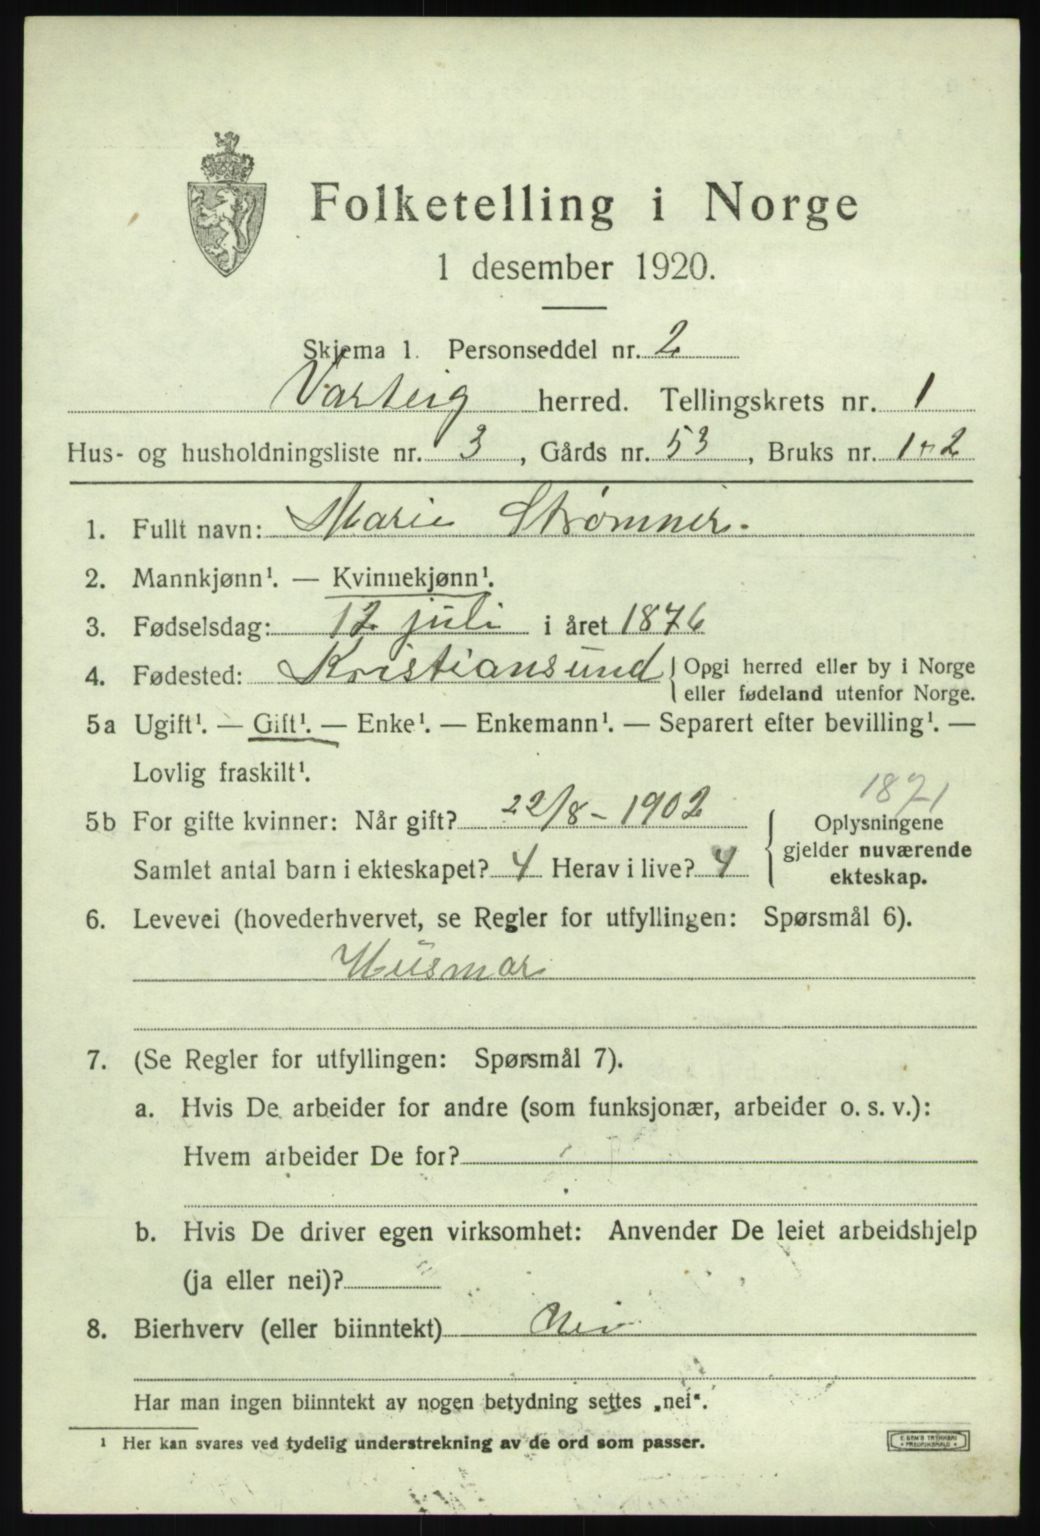 Folketelling i Norge
1 desember 1920.
Skjema 1. Personseddel nr. 2
Varteig herred. Tellingskrets nr. 1
Hus- og husholdningsliste nr. 3, Gårds nr. 53, Bruks nr. 1+2
1. Fullt navn: Marie Strømnir.
2. Mannkjønn¹. — Kvinnekjønn¹.
3. Fødselsdag: 12 juli i året 1876
4. Fødested: Kristiansund { Opgi herred eller by i Norge
eller fødeland utenfor Norge.
5a Ugift¹. — Gift¹. — Enke¹. — Enkemann¹. — Separert efter bevilling¹. —
Lovlig fraskilt¹.
1871
5b For gifte kvinner: Når gift? 22/8 – 1902 { Oplysningene
gjelder nuværende
Samlet antal barn i ekteskapet? 4 Herav i live? 4
ekteskap.
6. Levevei (hovederhvervet, se Regler for utfyllingen: Spørsmål 6).
Husmor
7. (Se Regler for utfyllingen: Spørsmål 7).
a. Hvis De arbeider for andre (som funksjonær, arbeider o. s. v.):
Hvem arbeider De for?
b. Hvis De driver egen virksomhet: Anvender De leiet arbeidshjelp
(ja eller nei)?
8. Bierhverv (eller biinntekt) Nei
Har man ingen biinntekt av nogen betydning settes „nei“.
¹ Her kan svares ved tydelig understrekning av de ord som passer.